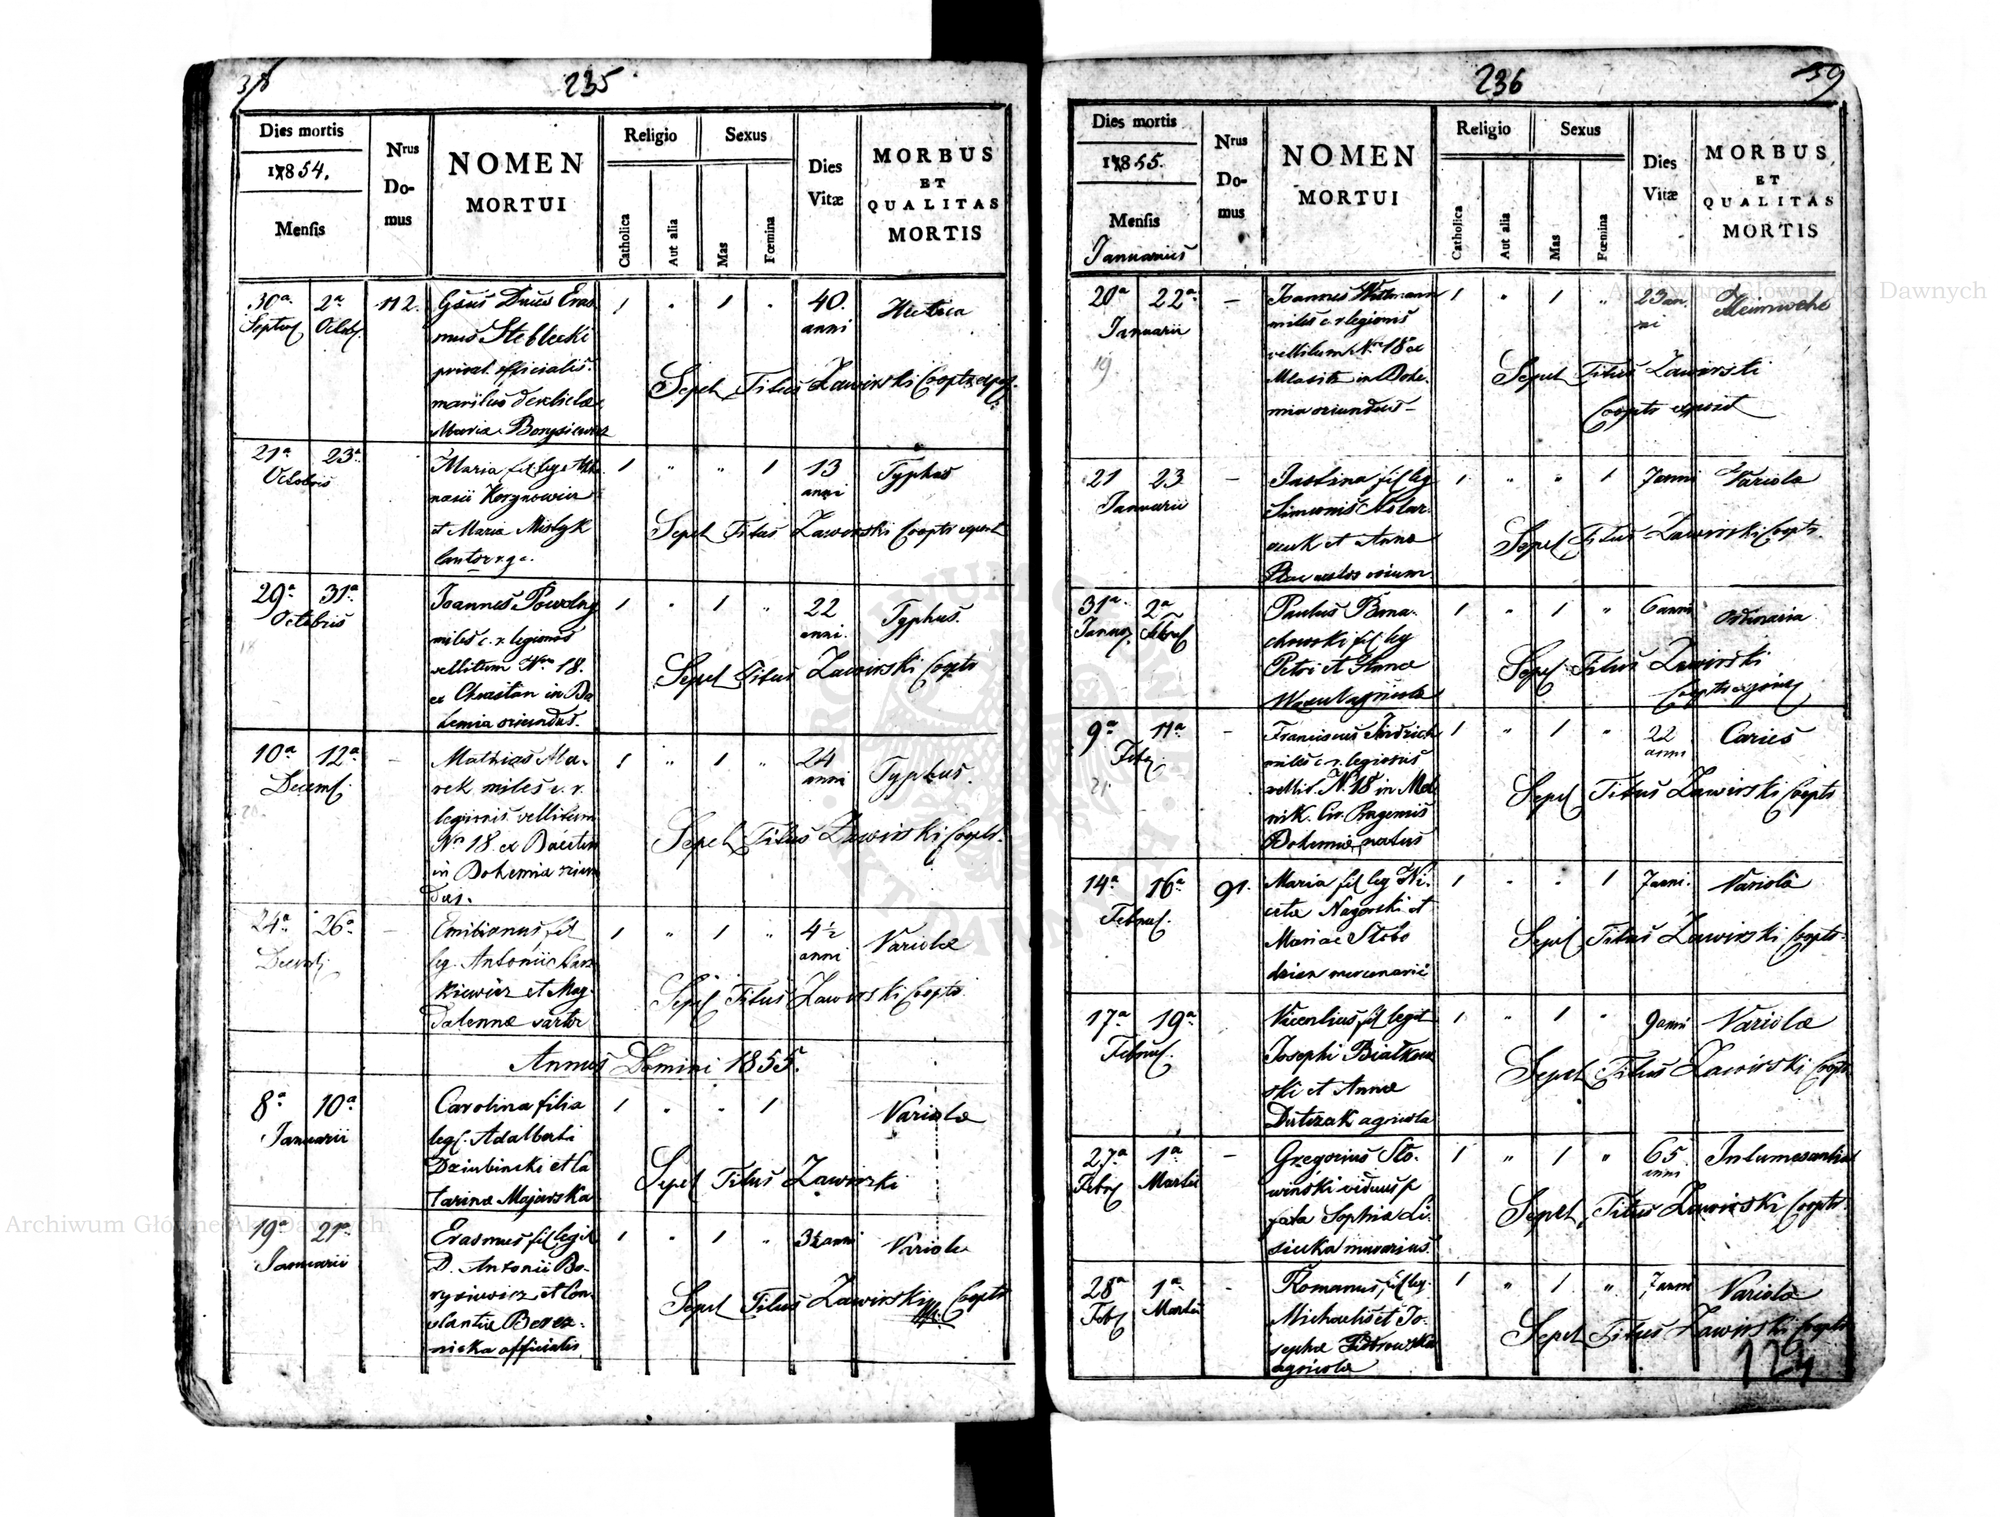 38
235
Dies mortis
1854.
Mensis
Nrus
Do-
mus
NOMEN
MORTUI
Religio
Catholica
Aut alia
Sexus
Mas
Fœmina
Dies
Vitæ
MORBUS
ET
QUALITAS
MORTIS
30a 2a 112.
Septem Octob
Eras
mus Steblecki
privat. officialis.
maritus derelictæ
Maria Borysiewicz
1 " 1 "
40.
anni
Hectica
Sepel Titus Zawirski Coopts expos.
21a 23a
Octobris
Maria fil leg
et Maria
1 " " 1
13
anni
Typhus
Sepel Titus Zawirski Coopts
29a 31a
Octobris
Joannes Powolny
miles c. r. legionis
vellitum Nro 18.
ex Chrastin in Bo
hemia oriundus.
1 " 1 "
22
anni.
Typhus.
Sepel Titus Zawirski Coopts
10a 12a
Decemb.
Mathias Ma-
rek miles c. r.
legionis vellitum
Nr 18. ex
in Bohemia oriun
dus.
1 " 1 "
24
anni
Typhus.
Sepel Titus Zawirski Coopts.
24a 26a
Decemb.
fil
leg. Antonii
kiewicz et Mag-
dalennæ
1 " 1 "
4½
anni
Variolæ
Sepel Titus Zawirski Coopts
Annus Domini 1855.
8a 10a
Januarii
Carolina filia
leg. Adalberti
Dziubinski et Ca
tarinæ Majewska
1 " " 1
Variolæ
Sepel Titus Zawirski
19a 21a
Januarii
Erasmus fil legit
D. Antonii Bo-
rysiewicz et Con-
stantiæ
officialis.
1 " 1 "
3½ anni
Variolæ
Sepel Titus Zawirski Coopts
236
59
Dies mortis
1855.
Mensis
Januarius
Nrus
Do-
mus
NOMEN
MORTUI
Religio
Catholica
Aut alia
Sexus
Mas
Fœmina
Dies
Vitæ
MORBUS
ET
QUALITAS
MORTIS
20a 22a –
Januarii
19
Joannes
miles c. r legionis
vellitum Nro 18 ex
in Bohe-
mia oriundus –
1 " 1 "
23 an-
ni
Heimwehe
Sepel Titus Zawirski
Coopts exposit
21 23 –
Januarii
Justina fil leg
Simeonis
et Annæ
1 " " 1
7 anni
Variolæ
Sepel Titus Zawirski Coopts.
31a 2a
Januar. Februar
Paulus Bma-
chowski fil leg
Petri et Annæ
1 " 1 "
6 anni
ordinaria
Sepel Titus Zawirski
9a 11a –
Febr.
21.
Franciscus Jindrich
miles c. r. legionis
vellit. N. 18 in Mel
nik. Cir. Pragensis
Bohemiæ natus
1 " 1 "
22
anni
Caries
Sepel Titus Zawirski Coopts
14a 16a 91.
Februar.
Maria fil leg Ni-
cetæ Nagorski et
Mariae Słobo
dzian mercenarii
1 " " 1
7 anni.
Variola
Sepel Titus Zawirski Coopts.
17a 19a
Februar.
Vicentius fil legit
Josephi Białkow
ski et Annæ
Dutczak agricola
1 " 1 "
9 anni
Variolæ
Sepel Titus Zawirski Coopts
27a 1a –
Febr. Martii
Gregorius Sło-
winski viduus p
fata Sophia Li-
siecka murarius.
1 " 1 "
65
anni
Intumescentia
Sepel Titus Zawirski Coopts
28a 1a –
Feb Martii
Romanus, fil leg.
Michaelis et Jo-
sephæ
agricolæ
1 " 1 "
7 anni
Variola
Sepel Titus Zawirski Coopts
Archiwum Główne Akt Dawnych
Archiwum Główne Akt Dawnych
ARCHIWUM GŁÓWNE AKT DAWNYCH